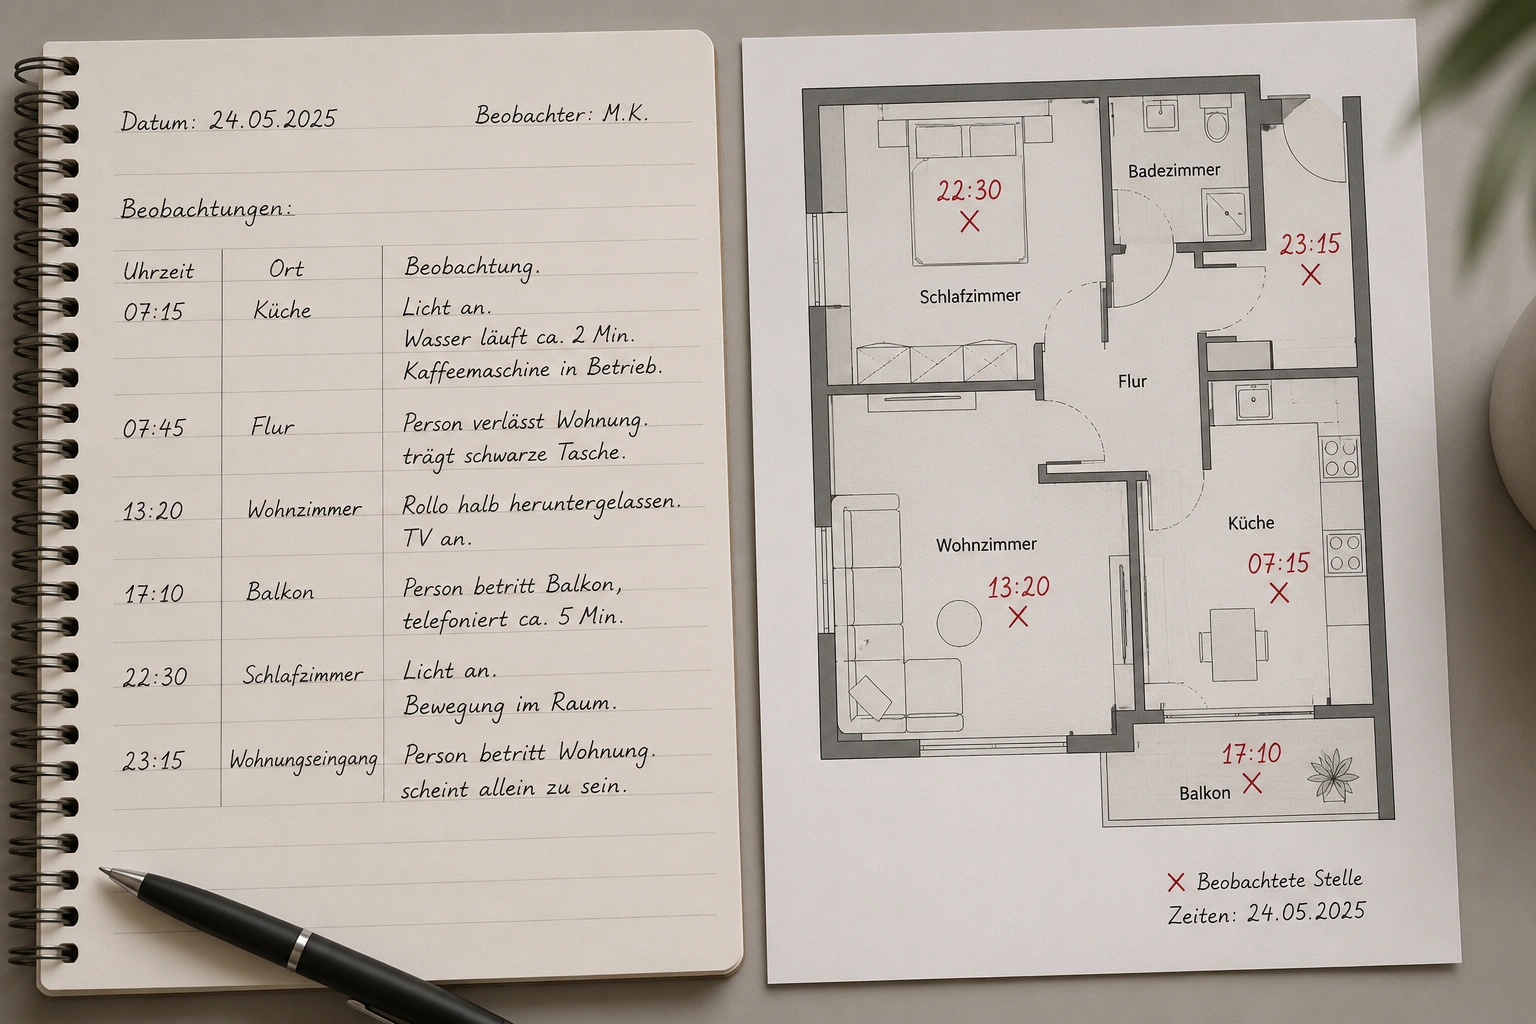 Datum: 24.05.2025 Beobachter: M.K.
Beobachtungen:
Uhrzeit Ort Beobachtung.
07:15 Küche Licht an.
Wasser läuft ca. 2 Min.
Kaffeemaschine in Betrieb.
07:45 Flur Person verlässt Wohnung.
trägt schwarze Tasche.
13:20 Wohnzimmer Rollo halb heruntergelassen.
TV an.
17:10 Balkon Person betritt Balkon,
telefoniert ca. 5 Min.
22:30 Schlafzimmer Licht an.
Bewegung im Raum.
23:15 Wohnungseingang Person betritt Wohnung.
scheint allein zu sein.
Badezimmer
22:30
23:15
Schlafzimmer
Flur
Küche
Wohnzimmer
07:15
13:20
17:10
Balkon
Beobachtete Stelle
Zeiten: 24.05.2025